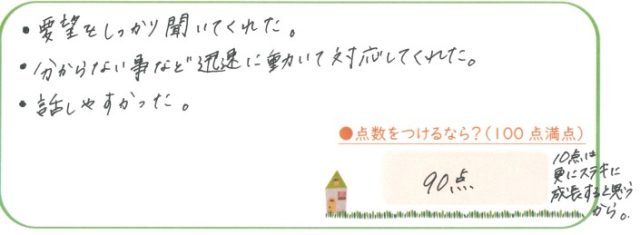 ・要望をしっかり聞いてくれた。
・分からない事など迅速に動いて対応してくれた。
・話しやすかった。
●点数をつけるなら？(100点満点)
90点
10点は
更にステキに
成長すると思う
から。